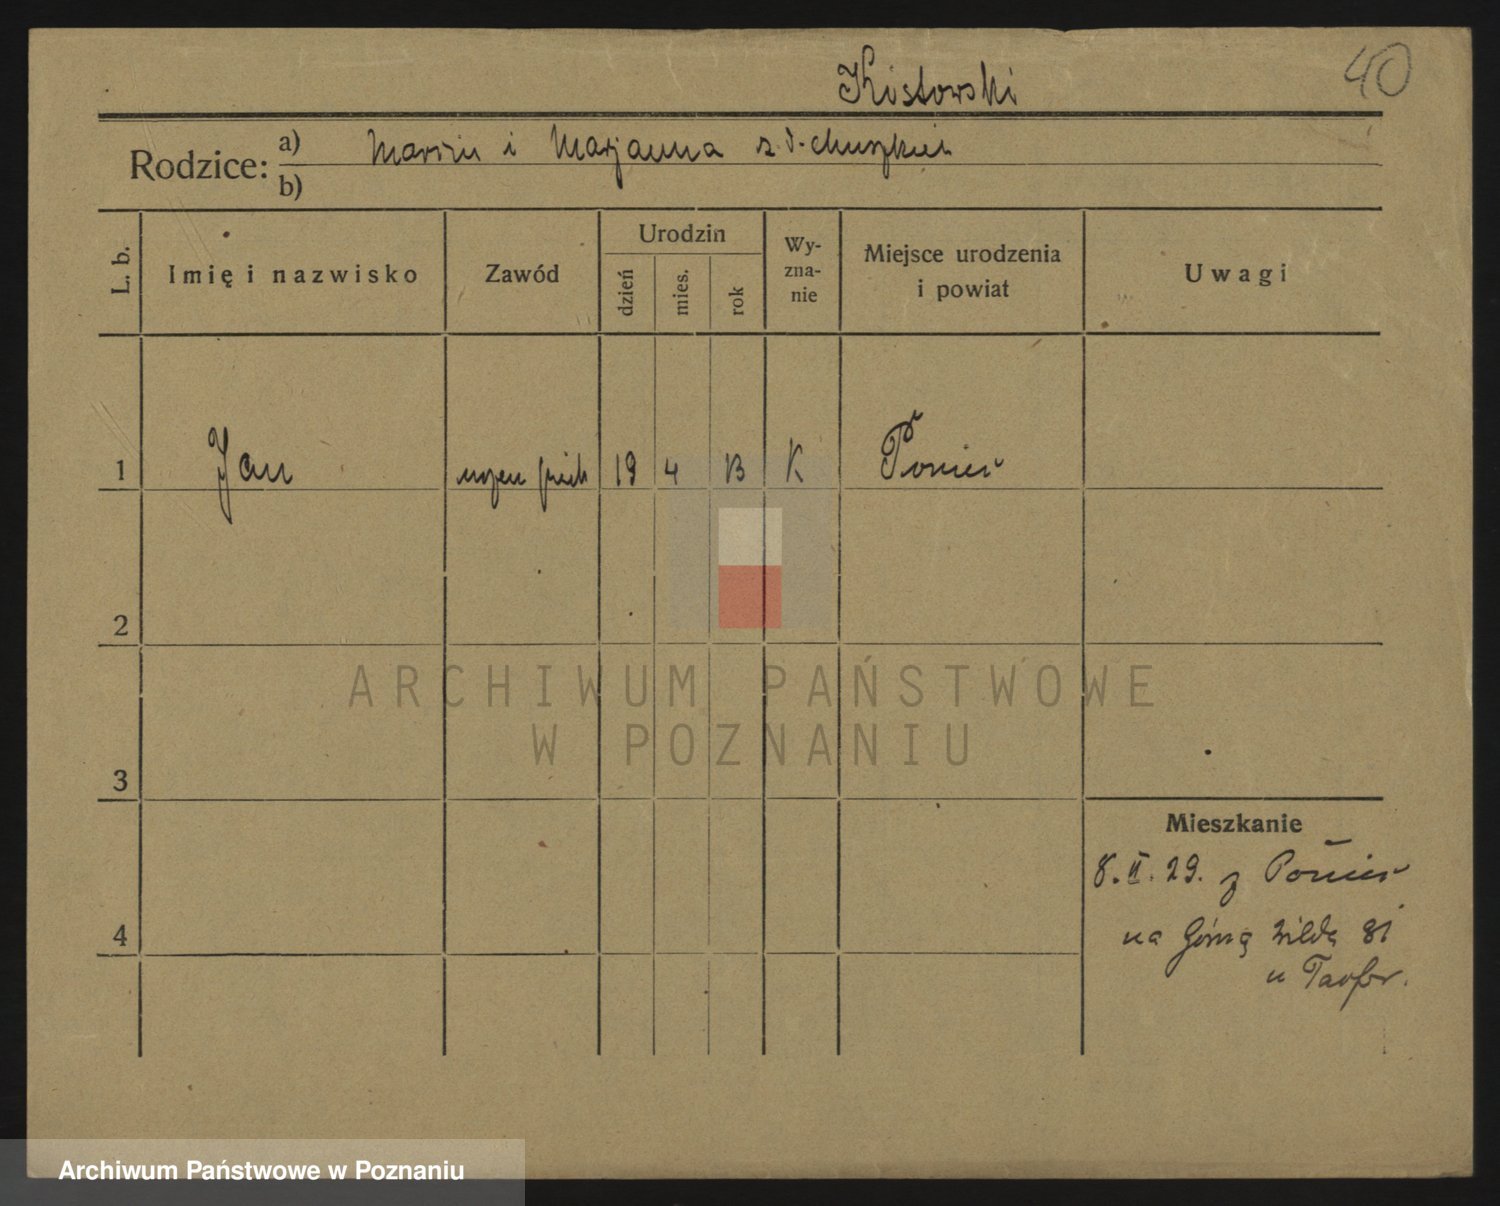 Kistowski
40
Rodzice:
a) Marcin i Marjanna z d.
b)
L. b.
Imię i nazwisko
Zawód
Urodzin
dzień
mies.
rok
Wy-
zna-
nie
Miejsce urodzenia
i powiat
Uwagi
1 Jan uczeń piek 19 4 13 K Poniec
2
3
4
Mieszkanie
8. II. 29. z Poniec
na Górną Wildę 81
u
ARCHIWUM PAŃSTWOWE
W POZNANIU
Archiwum Państwowe w Poznaniu